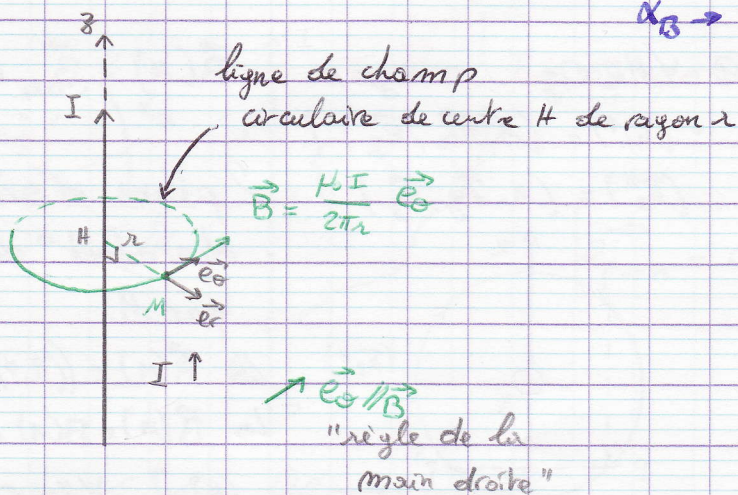 α_B →
z
ligne de champ
I
circulaire de centre H de rayon r
B⃗ = μ₀I / 2πr e⃗_θ
H r
e⃗_θ
M e⃗_r
I ↑
e⃗_θ // B⃗
"règle de la
main droite"